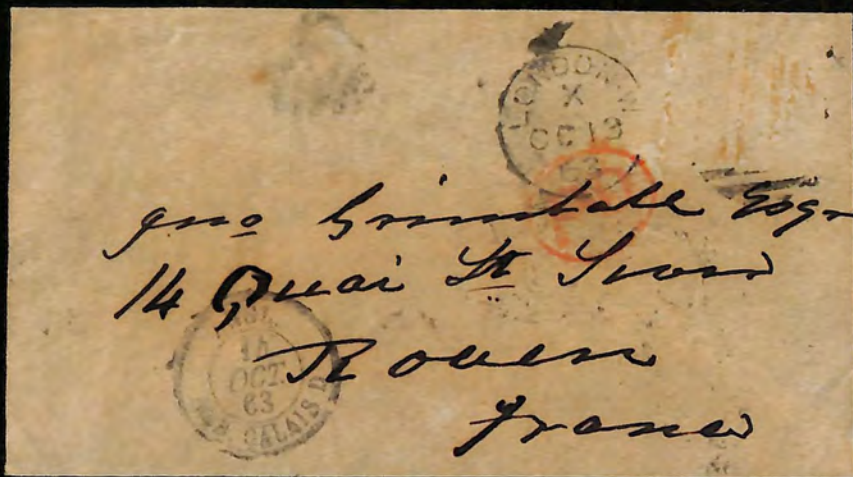 LONDON·W
X
OC 13
63
Jno Grimball Esqr
14 Quai St Sever
Rouen
France
14
OCT
63
CALAIS